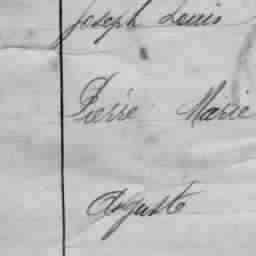 Joseph Louis
Pierre Marie
Auguste